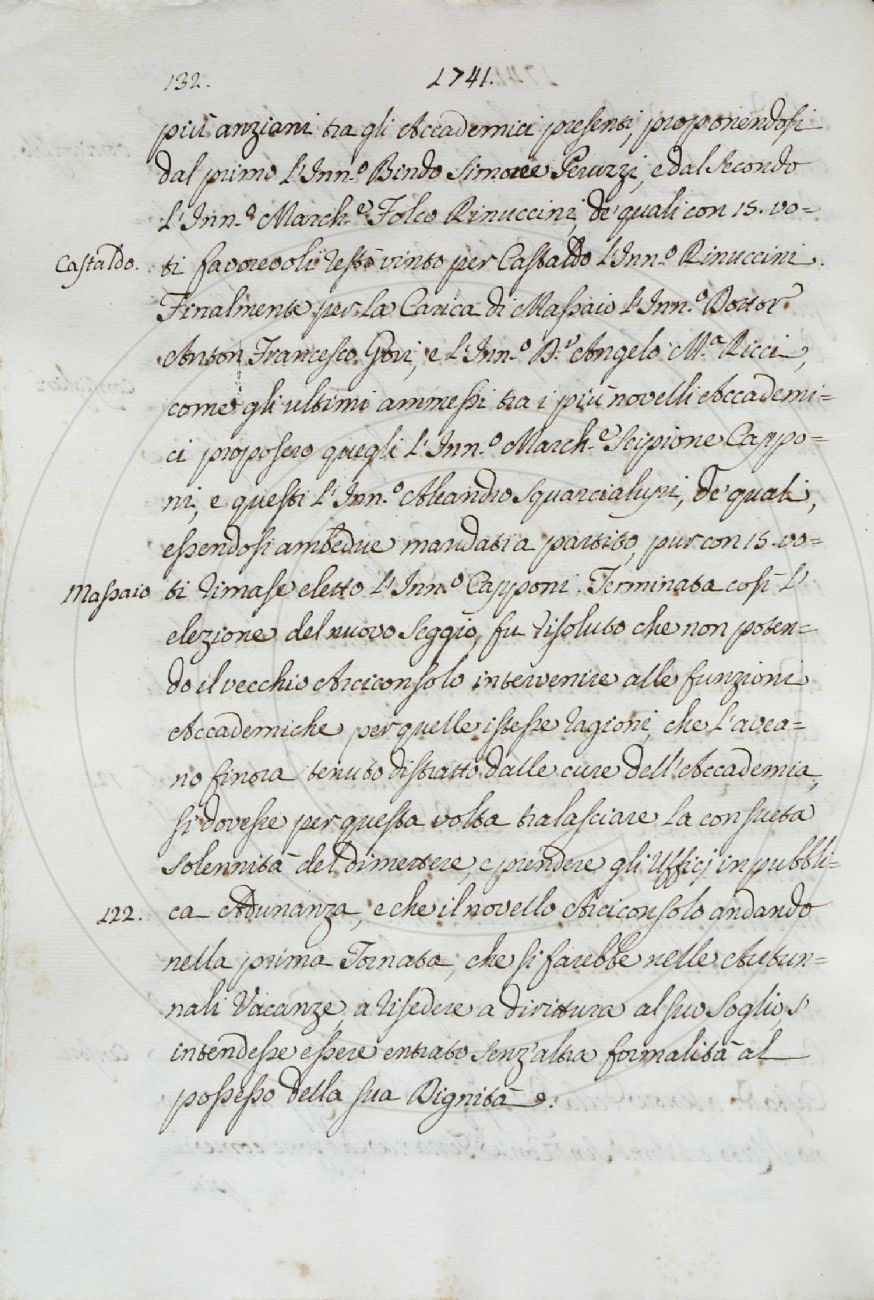 132.
1741.
più anziani tra gli Accademici presenti, proponendosi
dal primo l'Inn.º Bindo Simone Peruzzi, e dal secondo
l'Inn.º March.e Folco Rinuccini, de' quali con 15. vo=
Castaldo.
ti favorevoli restò vinto per Castaldo l'Inn.º Rinuccini.
Finalmente per la Carica di Massaio l'Inn.º Dottor
Anton Francesco Gori, e l'Inn.º D.r Angelo M.a Ricci,
come gli ultimi ammessi tra i più novelli Accademi=
ci proposero quegli l'Inn.º March.e Scipione Cappo=
ni, e questi l'Inn.º Aleandro Squarcialupi, de' quali,
essendosi ambedue mandati a partito, pur con 15. vo=
Massaio
ti rimase eletto l'Inn.º Capponi. Terminata così l'
elezione del nuovo Seggio, fu risoluto che non poten=
do il vecchio Arciconsolo intervenire alle funzioni
Accademiche per quelle istesse ragioni, che l'avea=
no finora tenuto distratto dalle cure dell'Accademia,
si dovesse per questa volta tralasciare la consueta
solennità del dimettere, e prendere gli Uffici in pubbli=
122.
ca Adunanza, e che il novello Arciconsolo andando
nella prima Tornata, che si farebbe nelle Autun=
nali Vacanze a risedere a dirittura al suo soglio, s'
intendesse essere entrato senz'altra formalità al
possesso della sua Dignità.